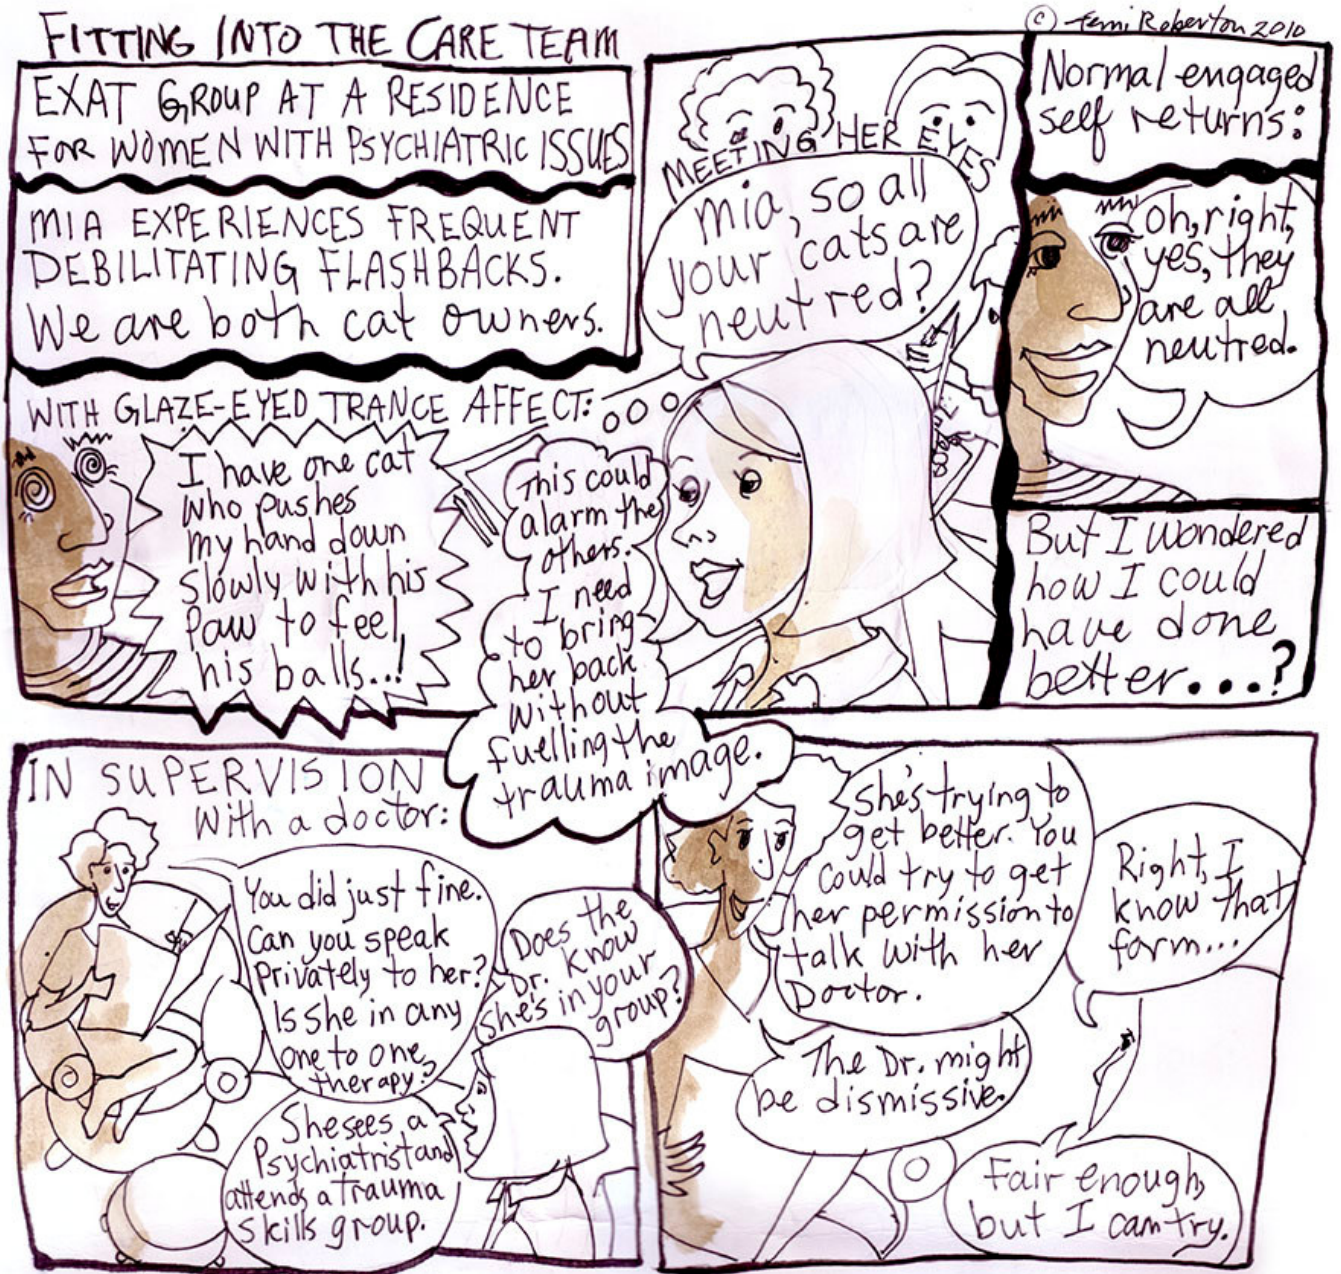 FITTING INTO THE CARE TEAM
© Temi Roberton 2010
EXAT GROUP AT A RESIDENCE
FOR WOMEN WITH PSYCHIATRIC ISSUES
MIA EXPERIENCES FREQUENT
DEBILITATING FLASHBACKS.
We are both cat owners.
WITH GLAZE-EYED TRANCE AFFECT:
I have one cat
who pushes
my hand down
slowly with his
paw to feel
his balls...!
This could
alarm the
others.
I need
to bring
her back
without
fuelling the
trauma image.
MEETING HER EYES
mia, so all
your cats are
neutred?
Normal engaged
self returns:
oh, right,
yes, they
are all
neutred.
But I wondered
how I could
have done
better...?
IN SUPERVISION
with a doctor:
You did just fine.
Can you speak
privately to her?
Is she in any
one to one
therapy?
She sees a
Psychiatrist and
attends a trauma
skills group.
Does the
Dr. know
she's in your
group?
She's trying to
get better. You
could try to get
her permission to
talk with her
Doctor.
Right, I
know that
form...
The Dr. might
be dismissive.
Fair enough,
but I can try.